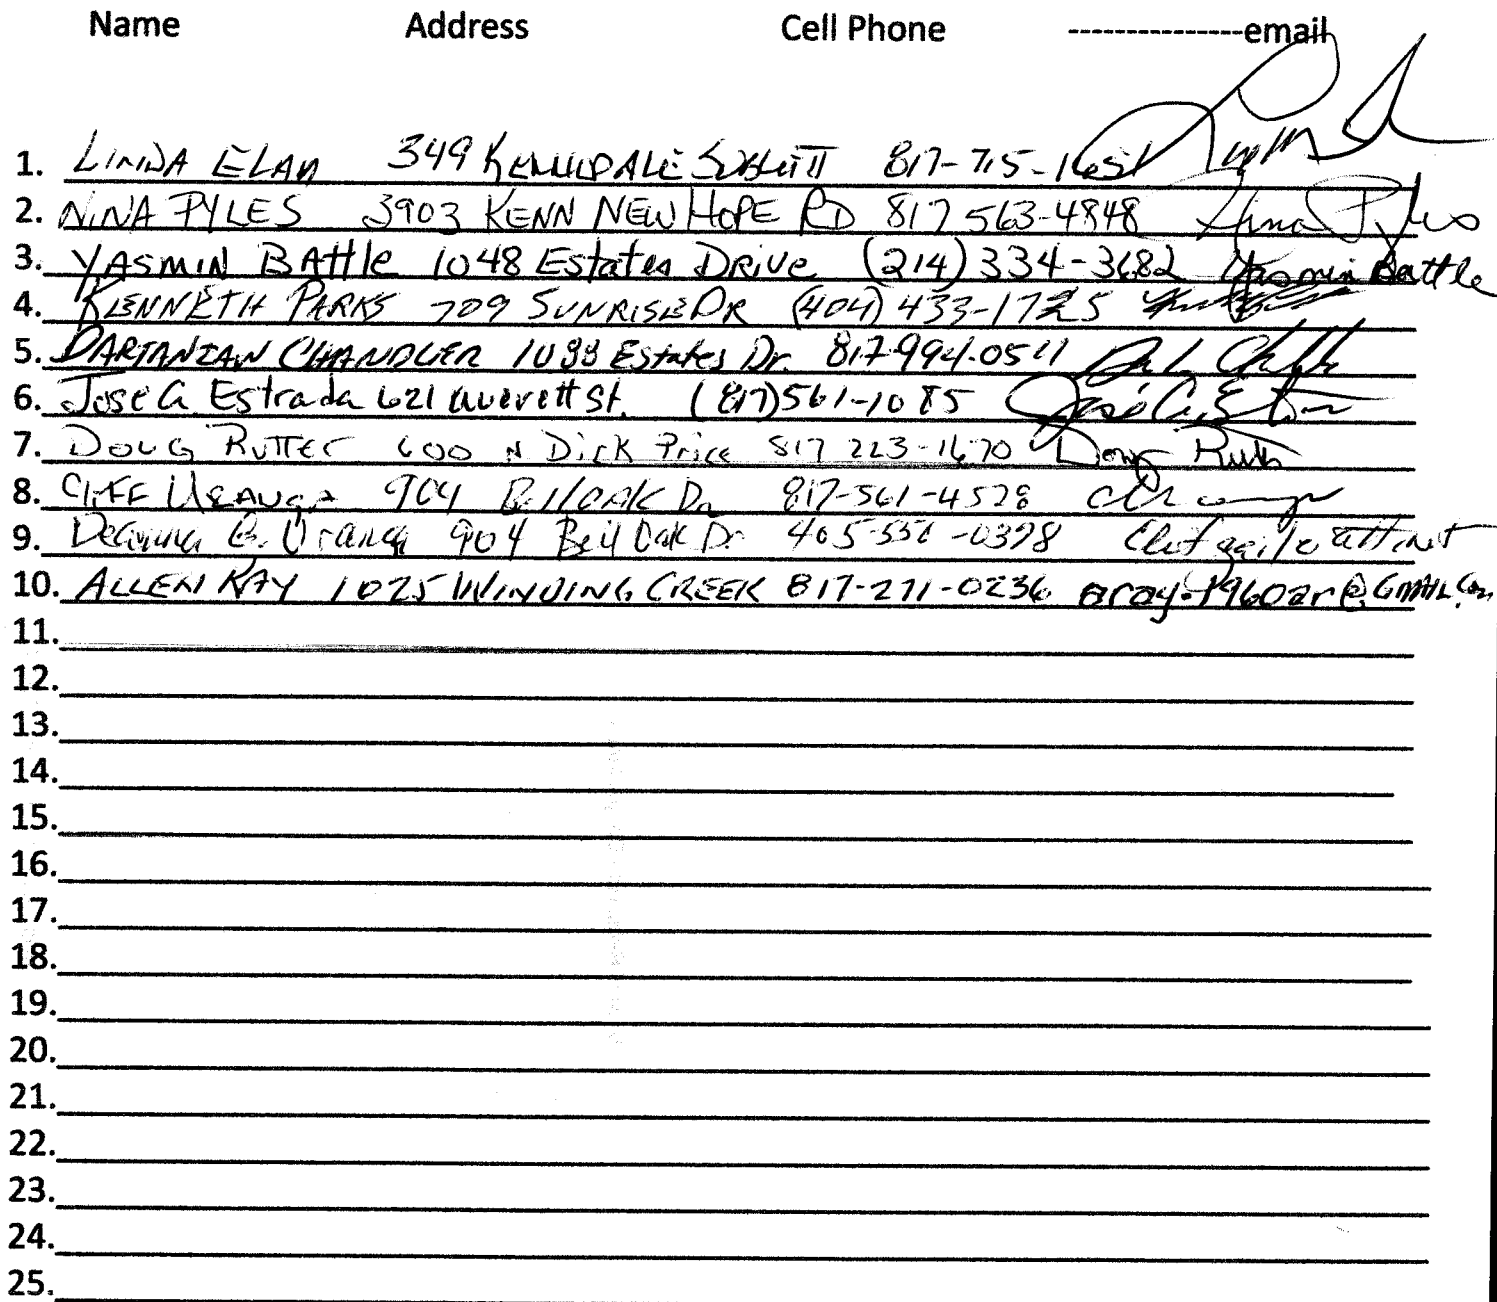 Name Address Cell Phone ---------------email
1. LINDA ELAM 349 KENNEDALE SUBLETT 817-715-1651
2. NINA PYLES 3903 KENN NEW HOPE RD 817 563-4848 Nina Pyles
3. YASMIN BAttle 1048 Estates DRIVE (214) 334-3682 Yasmin Battle
4. KENNETH PARKS 709 SUNRISE DR (404) 433-1725
5. DARTANIAN CHANDLER 1033 Estates Dr. 817-994-0511
6. Jose A Estrada 621 averett St. (817) 561-1085
7. DOUG RUTTER 600 N Dick Price 817 223-1670 Doug Rutter
8. CLIFF URANGA 904 Bell OAK Dr 817-561-4528
9. Deanna G. Uranga 904 Bell Oak Dr
10. ALLEN RAY 1025 WINDING CREEK 817-271-0236
11.
12.
13.
14.
15.
16.
17.
18.
19.
20.
21.
22.
23.
24.
25.